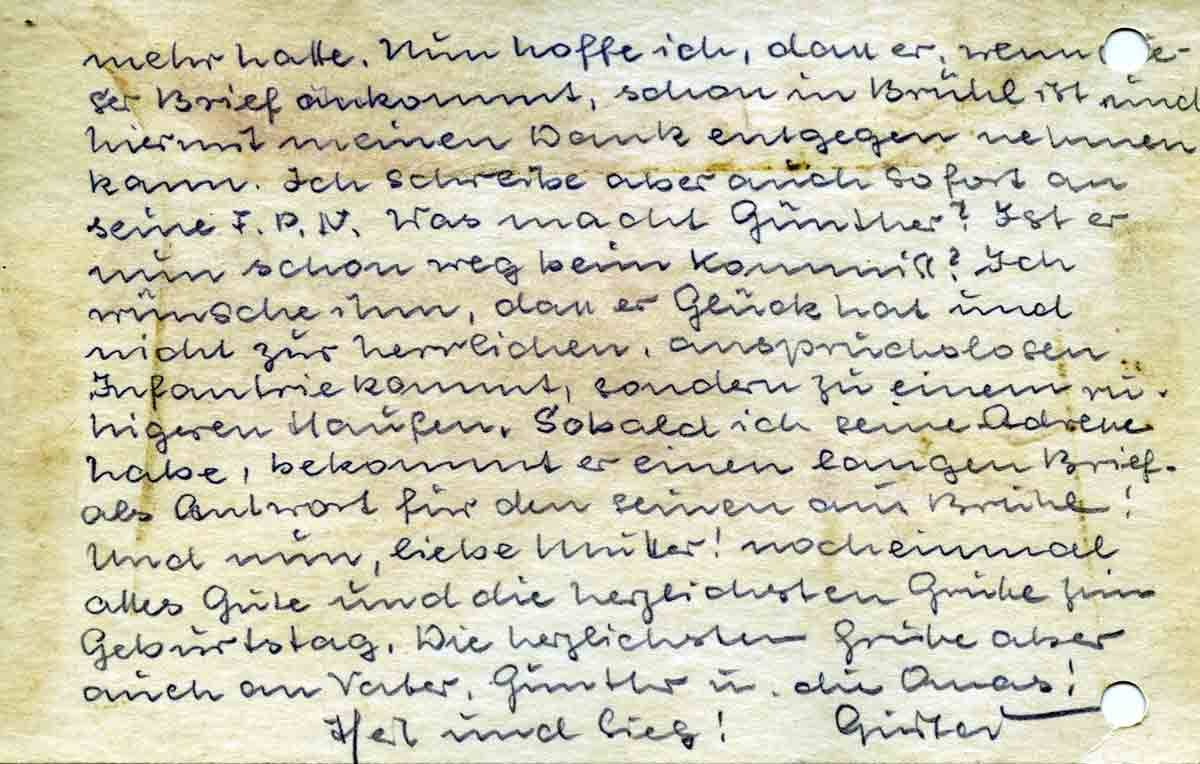 mehr hatte. Nun hoffe ich, daß er, wenn die-
ser Brief ankommt, schon in Brühl ist und
hiermit meinen Dank entgegen nehmen
kann. Ich schreibe aber auch sofort an
seine F.P.N. Was macht Günther? Ist er
nun schon weg beim Kommiß? Ich
wünsche ihm, daß er Glück hat und
nicht zur herrlichen, anspruchslosen
Infantrie kommt, sondern zu einem ru-
higeren Haufen. Sobald ich seine Adresse
habe, bekommt er einen langen Brief
als Antwort für den seinen aus Brühl!
Und nun, liebe Mutter! noch einmal
alles Gute und die herzlichsten Grüße zum
Geburtstag. Die herzlichsten Grüße aber
auch an Vater, Günther u. die Omas!
Heil und Sieg! Gustav